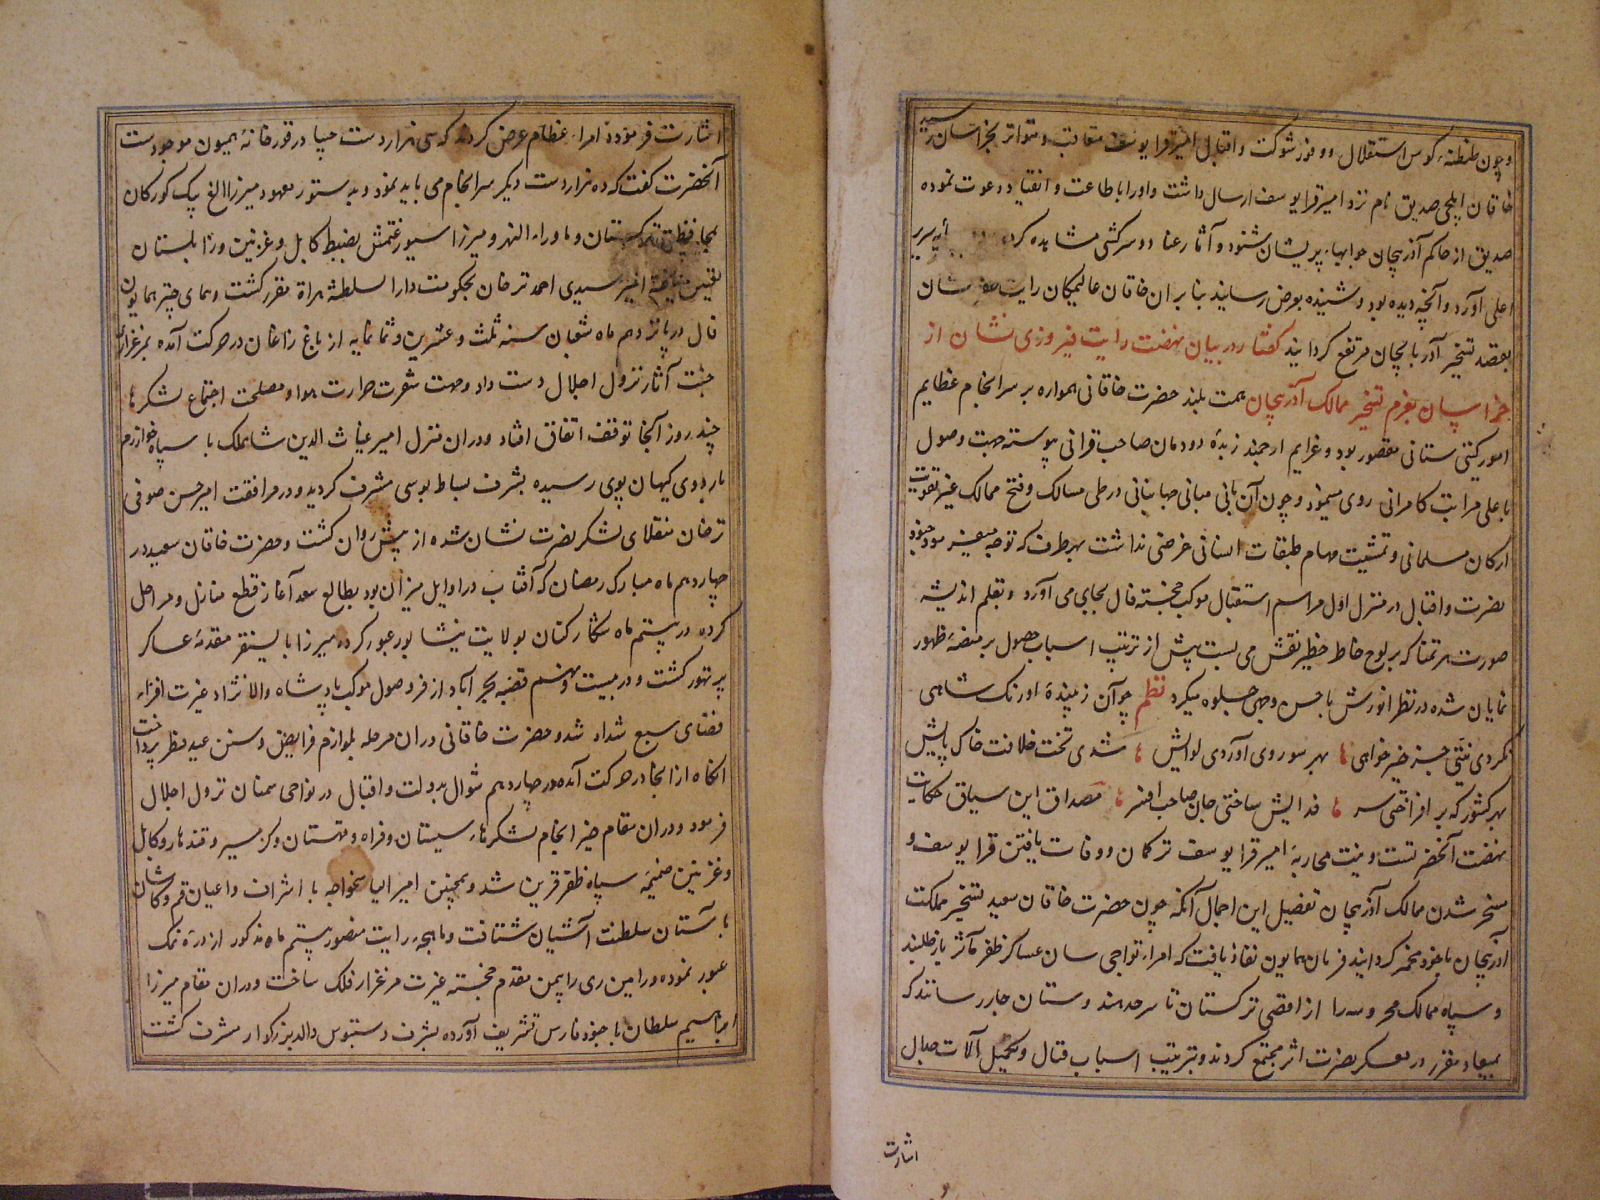 وچون طنطنه کوس استقلال و وفور شوکت و اقبال امیر قرا یوسف متعاقب و متواتر بخراسان رسید
خاقان ایلچی صدیق نام نزد امیر قرا یوسف ارسال داشت و او را باطاعت و انقیاد دعوت نموده
صدیق از حاکم آذربیجان جوابهاء پریشان شنود و آثار عناد و سرکشی مشاهده کرد
اعلی آورد و آنچه دیده بود و شنیده بعرض رسانید بنابر آن خاقان عالیمکان رایت
بقصد تسخیر آذربایجان مرتفع کردانید کفتار در بیان نهضت رایت فیروزی نشان از
خراسان بعزم تسخیر ممالک آذربیجان همت بلند حضرت خاقانی همواره بر سرانجام عظایم
امور کیتی ستانی مقصور بود و عزایم ارجمند زبدهٔ دودمان صاحب قرانی پیوسته جهت وصول
باعلی مراتب کامرانی روی مینمود و چون آن بانی مبانی جهانبانی در طی مسالک و فتح ممالک غیر تقویت
ارکان مسلمانی و تمشیت مهام طبقات انسانی غرضی نداشت بهر طرف که توجه میفرمود جنود
نصرت و اقبال در منزل اول مراسم استقبال موکب خجسته فال بجای می آورد و بقلم اندیشه
صورت هر تمنا که بر لوح خاطر خطیر نقش می بست پیش از ترتیب اسباب حصول بر منصهٔ ظهور
نمایان شده در نظر انورش باحسن وجهی جلوه میکرد نظم چو آن زیبندهٔ اورنک شاهی
نکردی نیتی جز خیر خواهی بهر سو روی آوردی لوایش شدی تخت خلافت خاک پایش
بهر کشور که بر افراختی سر فدایش ساختی جان صاحب افسر مصداق این سیاق حکایت
نهضت آنحضرتست و نیت محاربهٔ امیر قرا یوسف ترکمان و وفات یافتن قرا یوسف و
مسخر شدن ممالک آذربیجان تفصیل این اجمال آنکه چون حضرت خاقان سعید تسخیر مملکت
آذربیجان با خود مخمر کردانید فرمان همایون نفاذ یافت که امراء تواجی سان عساکر ظفر مآثر باز طلبند
و سپاه ممالک محروسه را از اقصی ترکستان تا سرحد هندوستان جار رسانند که
بمیعاد مقرر در معسکر نصرت اثر مجتمع کردند و بترتیب اسباب قتال و تکمیل آلات جدال
اشارت
اشارت فرموده امراء عظام عرض کردند که سی هزار دست جیبا در قورخانهٔ همیون موجودست
آنحضرت کفت که ده هزار دست دیکر سرانجام می باید نمود و بدستور معهود میرزا الغ بیک کورکان
بمحافظت ترکستان و ماوراء النهر و میرزا سیورغتمش بضبط کابل و غزنین و زابلستان
تعیین امیر سیدی احمد ترخان بحکومت دار السلطنهٔ هراة مقرر کشت و همای چتر همایون
فال در پانزدهم ماه شعبان سنه ثلث و عشرین و ثمانمایه از باغ زاغان در حرکت آمده بمرغزار
جنت آثار نزول اجلال دست داد و جهت شدت حرارت هوا و مصلحت اجتماع لشکرها
چند روز آنجا توقف اتفاق افتاد و در ان منزل امیر غیاث الدین شاهملک با سپاه خوارزم
باردوی کیهان پوی رسیده بشرف بساط بوسی مشرف کردید و در مرافقت امیر حسن صوفی
ترخان منقلای لشکر نصرت نشان شده از پیش روان کشت و حضرت خاقان سعید در
چهاردهم ماه مبارک رمضان که آفتاب در اوایل میزان بود بطالع سعد آغاز قطع منازل و مراحل
کرده در بیستم ماه شکار کنان بولایت نیشابور عبور کرده میرزا بایسنقر مقدمهٔ عساکر
پر تهور کشت و در بیست و نهم قصبهٔ بحر آباد از فر وصول موکب پادشاه والا نژاد غیرت افزاء
فضای سبع شداد شد و حضرت خاقانی در ان مرحله بلوازم فرایض و سنن عید فطر پرداخت
انکاه از انجا در حرکت آمده در چهاردهم شوال بدولت و اقبال در نواحی سمنان نزول اجلال
فرمود و در ان مقام خیر انجام لشکرهاء سیستان و فراه و قهستان و کرمسیر و قندهار و کابل
و غزنین ضمیمهٔ سپاه ظفر قرین شد و همچنین امیر الیاسخواجه با اشراف و اعیان قم و کاشان
بآستان سلطنت آشیان شتافت و ماهچهٔ رایت منصور بیستم ماه مذکور از درهٔ نمک
عبور نموده ورامین ری را بیمن مقدم خجسته غیرت مرغزار فلک ساخت و در ان مقام میرزا
ابراهیم سلطان با جنود فارس تشریف آورده بشرف دستبوس والد بزرکوار مشرف کشت